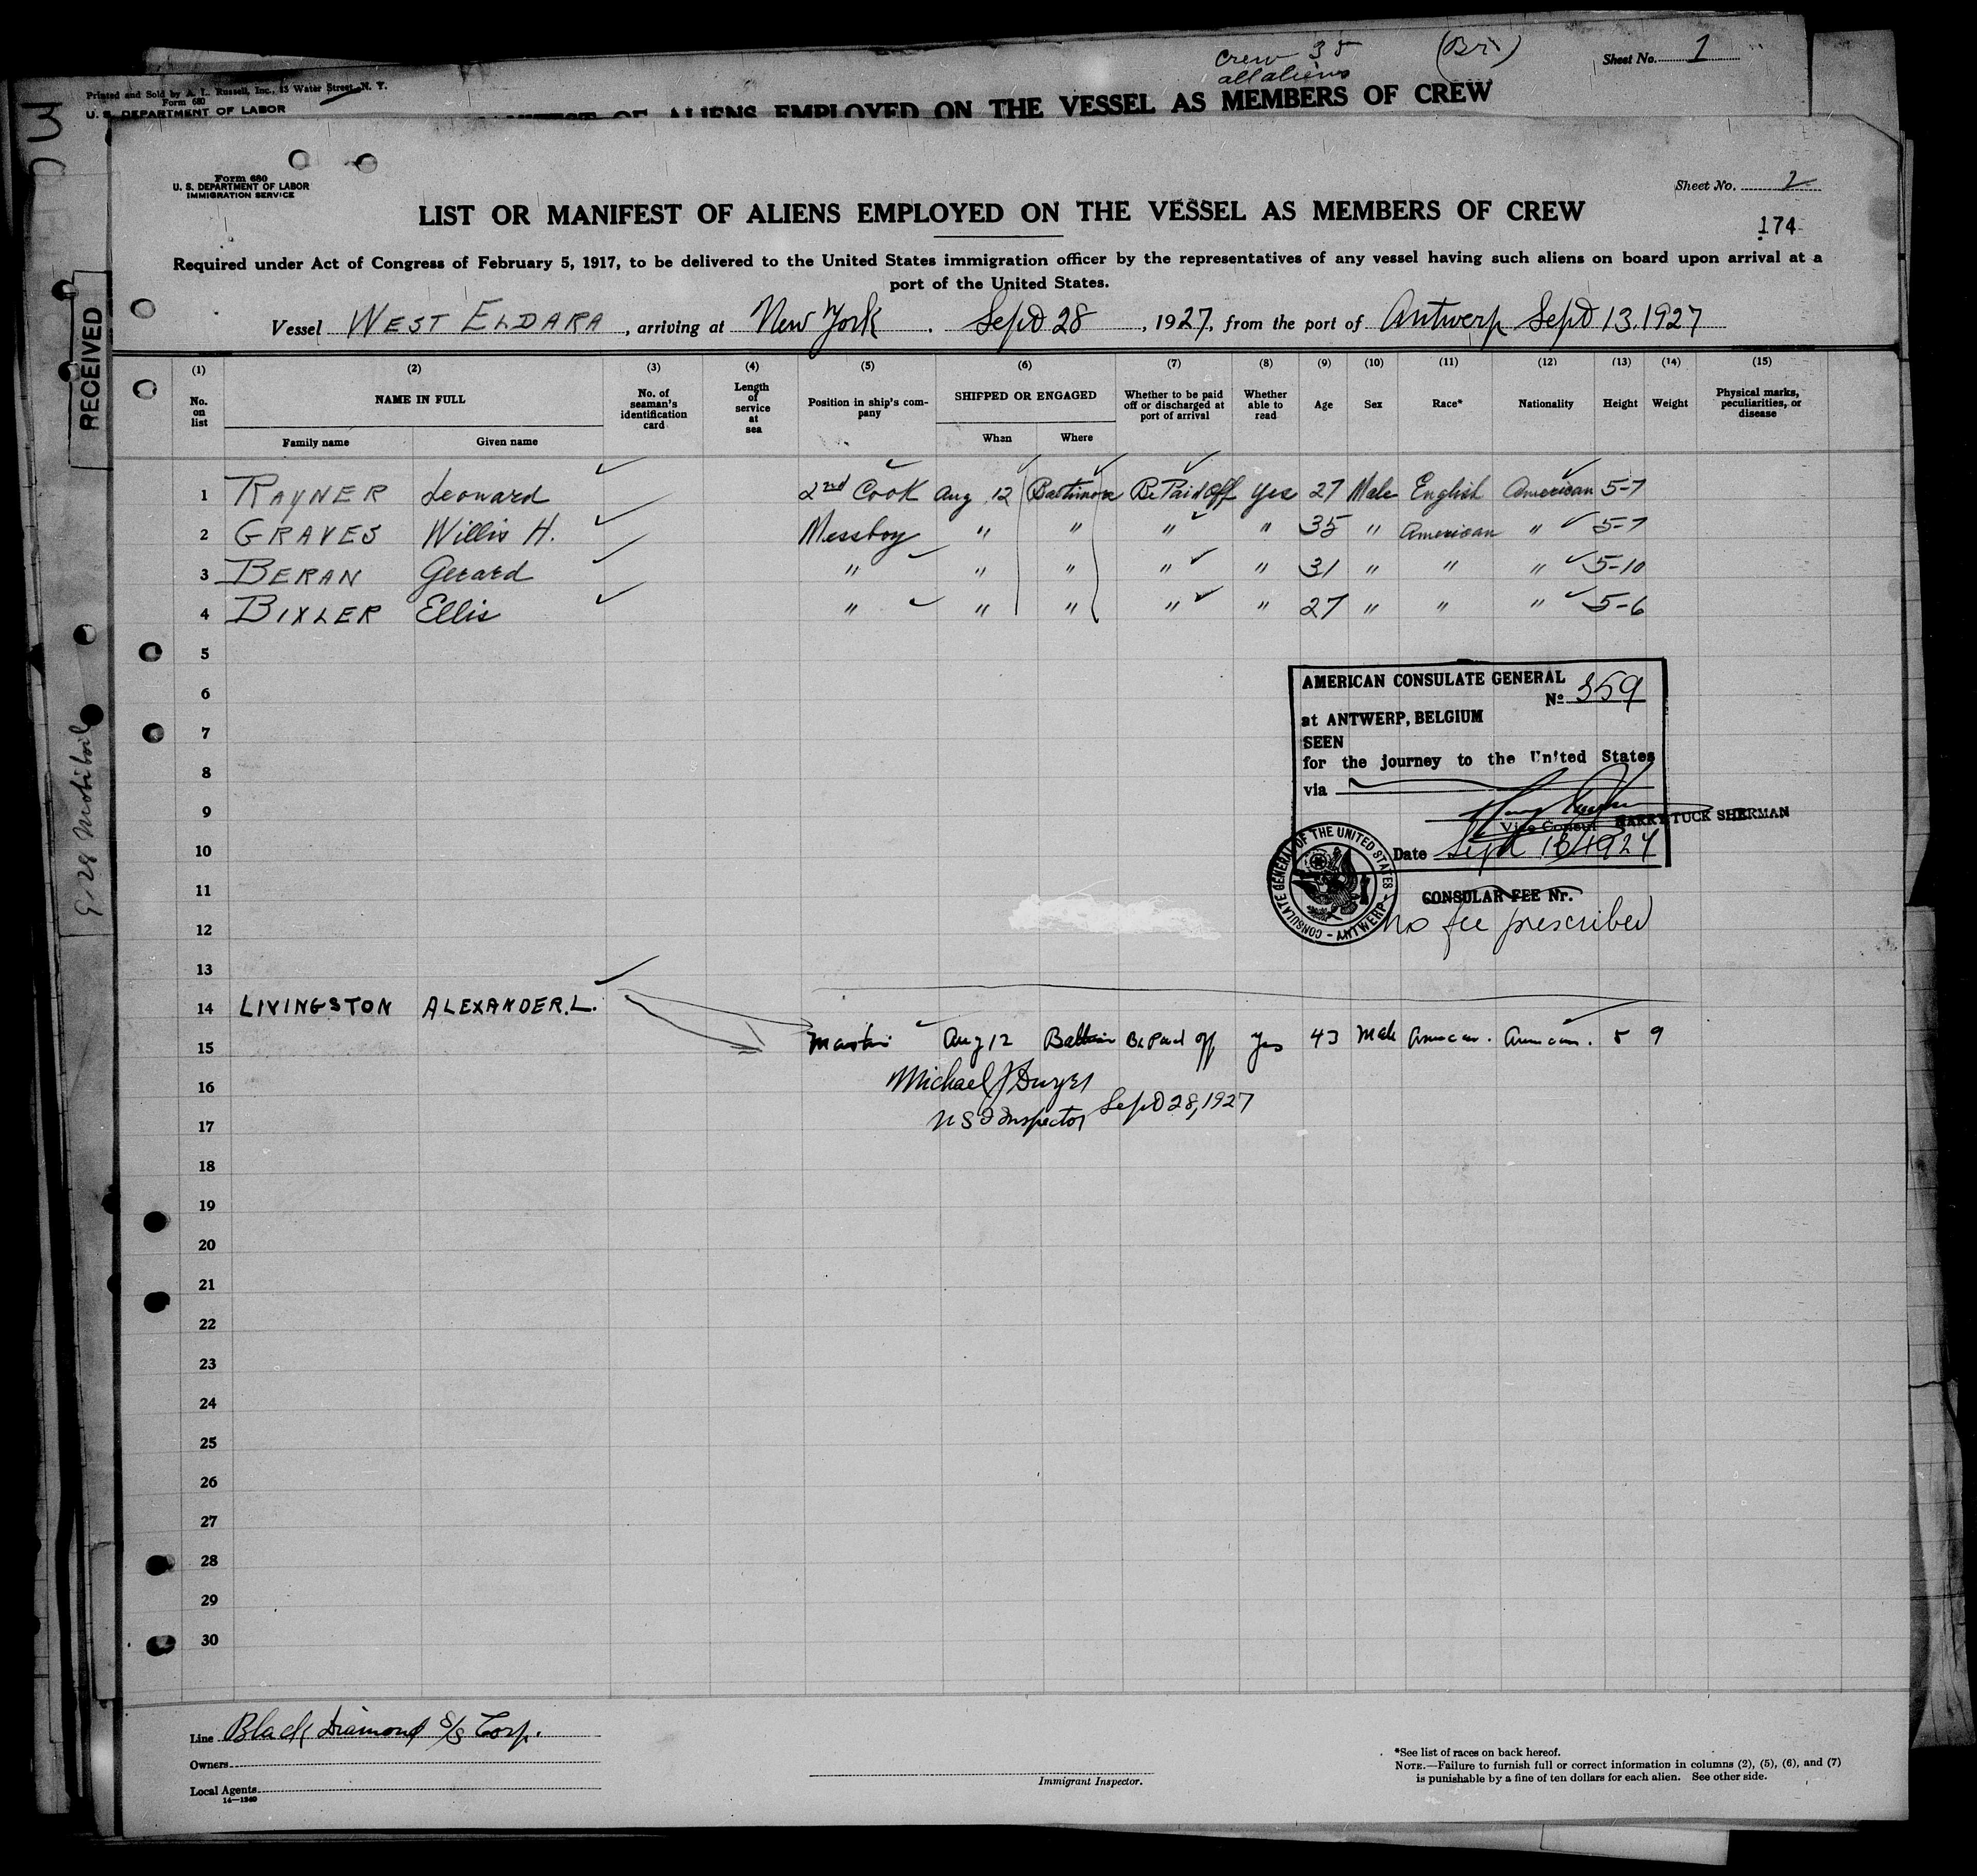 crew 35 (Br)
all aliens
Sheet No. 1
Printed and Sold by A. L. Russell, Inc., 15 Water Street, N. Y.
Form 680
U. S. DEPARTMENT OF LABOR
MANIFEST OF ALIENS EMPLOYED ON THE VESSEL AS MEMBERS OF CREW
Form 680
U. S. DEPARTMENT OF LABOR
IMMIGRATION SERVICE
Sheet No. 2
LIST OR MANIFEST OF ALIENS EMPLOYED ON THE VESSEL AS MEMBERS OF CREW
174
Required under Act of Congress of February 5, 1917, to be delivered to the United States immigration officer by the representatives of any vessel having such aliens on board upon arrival at a
port of the United States.
Vessel WEST ELDARA, arriving at New York. Sept 28, 1927, from the port of Antwerp Sept 13, 1927
RECEIVED
(1) (2) (3) (4) (5) (6) (7) (8) (9) (10) (11) (12) (13) (14) (15)
No. on list NAME IN FULL No. of seaman's identification card Length of service at sea Position in ship's company SHIPPED OR ENGAGED Whether to be paid off or discharged at port of arrival Whether able to read Age Sex Race* Nationality Height Weight Physical marks, peculiarities, or disease
Family name Given name When Where
1 RAYNER Leonard 2nd Cook Aug 12 Baltimore Be Paid off Yes 27 Male English American 5-7
2 GRAVES Willis H. Messboy " " " " 35 " American " 5-7
3 BERAN Gerard " " " " " 31 " " " 5-10
4 BIXLER Ellis " " " " " 27 " " " 5-6
5
6
7
8
9
10
11
12
13
AMERICAN CONSULATE GENERAL
No 359
at ANTWERP, BELGIUM
SEEN
for the journey to the United States
via
Vice Consul HARRY TUCK SHERMAN
Date Sept 13 1927
CONSULATE GENERAL OF THE UNITED STATES - ANTWERP -
CONSULAR FEE Nr.
no fee prescribed
14 LIVINGSTON ALEXANDER. L.
15 Master Aug 12 Baltim Be Paid off Yes 43 Male American. American. 5 9
16 Michael J Dwyer
17 U S I Inspector Sept 28, 1927
18
19
20
21
22
23
24
25
26
27
28
29
30
Line Black Diamond S/S Corp.
Owners
Local Agents
14—1240
Immigrant Inspector.
*See list of races on back hereof.
NOTE.—Failure to furnish full or correct information in columns (2), (5), (6), and (7)
is punishable by a fine of ten dollars for each alien. See other side.